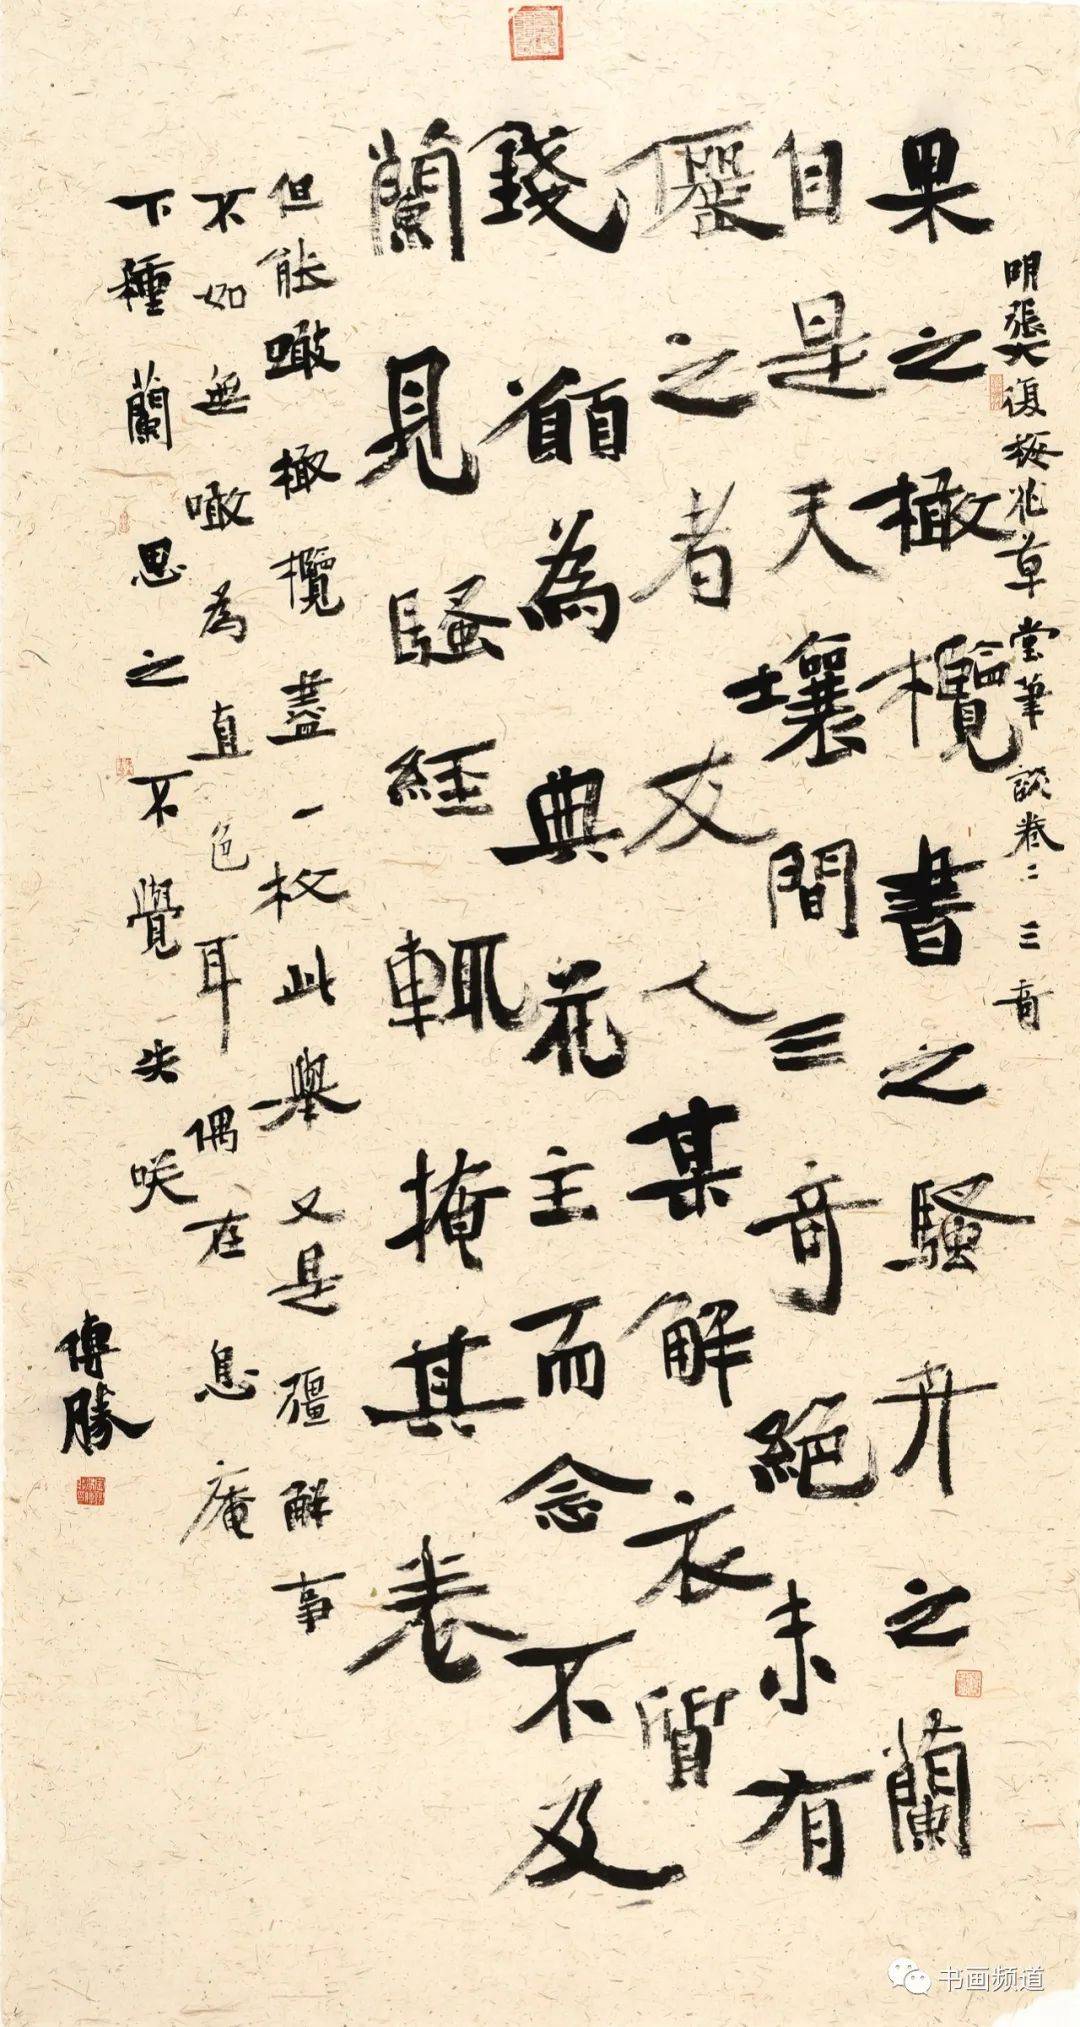 明張大復梅花草堂筆談卷二 三奇
果之橄欖書之騷卉之蘭
自是天壤間三奇絕未有
儷之者友人某解衣質
錢願為典花主而念不及
蘭見騷經輒掩其卷
但能噉橄欖盡一枚此舉又是彊解事
不如無噉為直色耳偶在息庵
下種蘭思之不覺一失咲
傅勝
书画频道